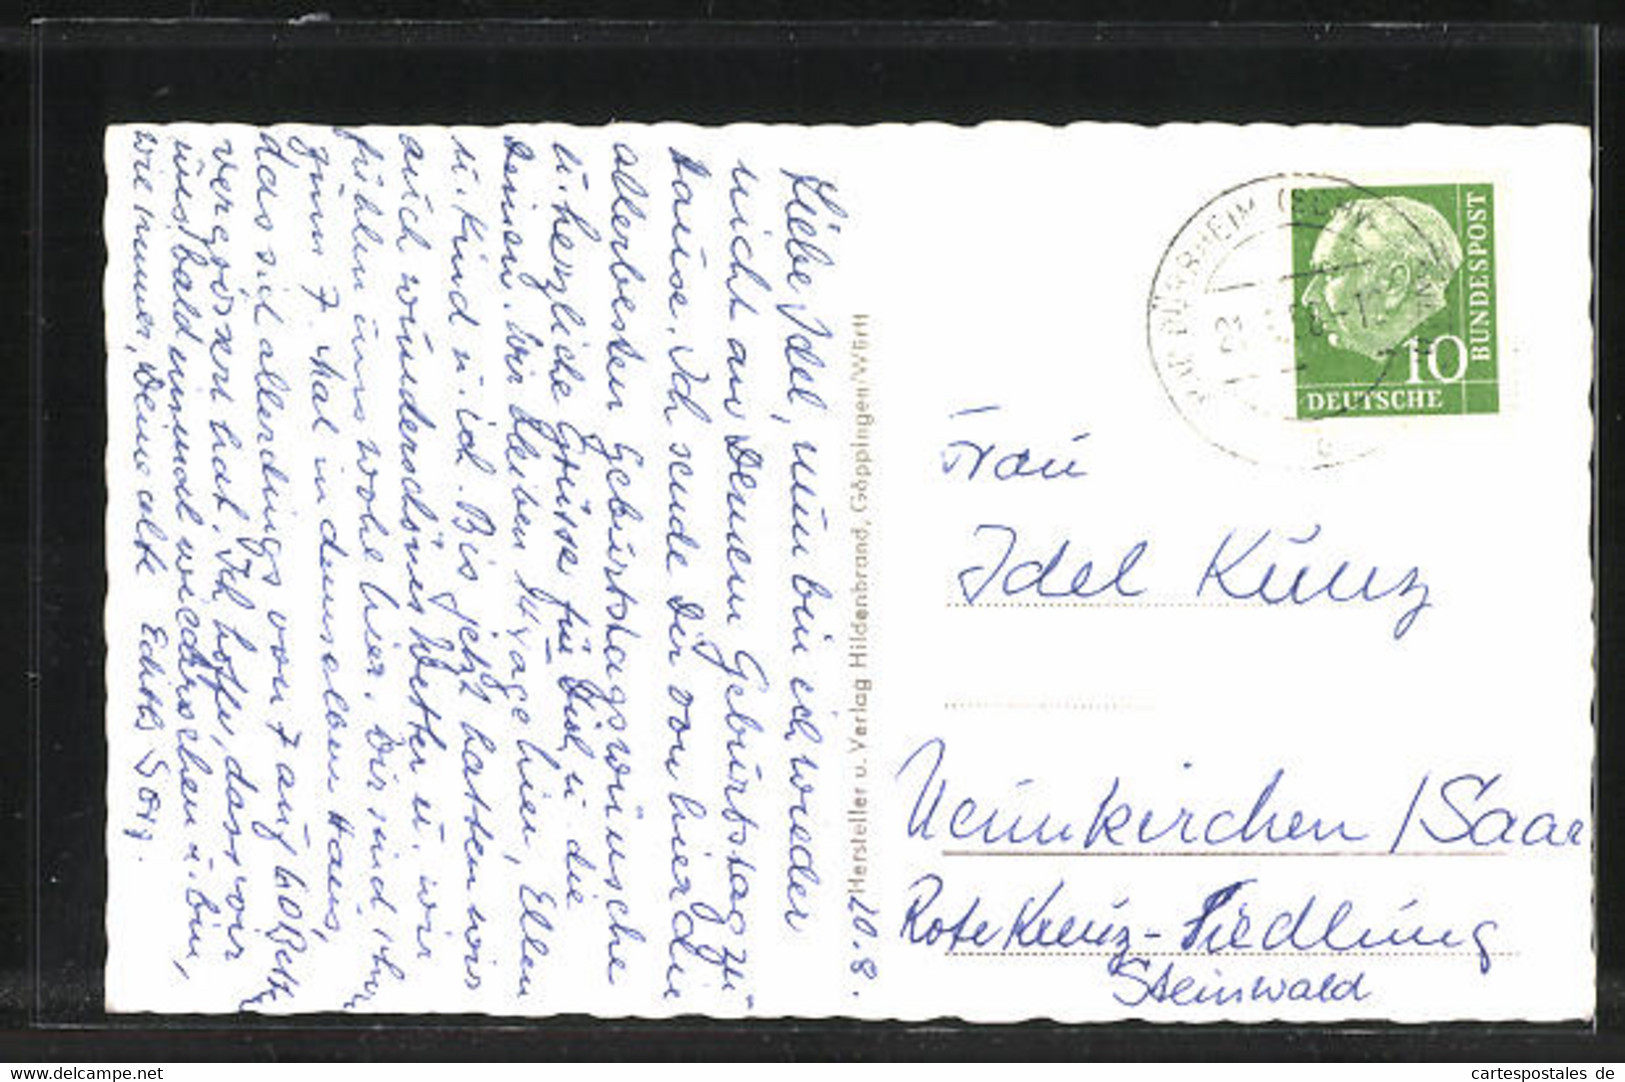 20.8.
Liebe Idel, nun bin ich wieder
nicht an Deinem Geburtstag zu
Hause. Ich sende Dir von hier die
allerbesten Geburtstagswünsche
u. herzliche Grüsse für Dich u. die
Deinen. Wir bleiben 14 Tage hier, Ellen
u. Kind u. ich. Bis jetzt hatten wir
auch wunderschönes Wetter u. wir
fühlen uns wohl hier. Wir sind schon
zum 7. Mal in demselben Haus,
das sich allerdings von 7 auf 60 Betten
vergrössert hat. Ich hoffe, dass wir
uns bald einmal wiedersehen u. bin,
wie immer, Deine alte
Hersteller u. Verlag Hildenbrand, Göppingen/Württ
BAD DÜRRHEIM
DEUTSCHE
BUNDESPOST
10
Frau
Idel Kunz
Neunkirchen / Saar
Rote Kreuz-Siedlung
Steinwald
https://www.cartespostales.eu
cartespostales de